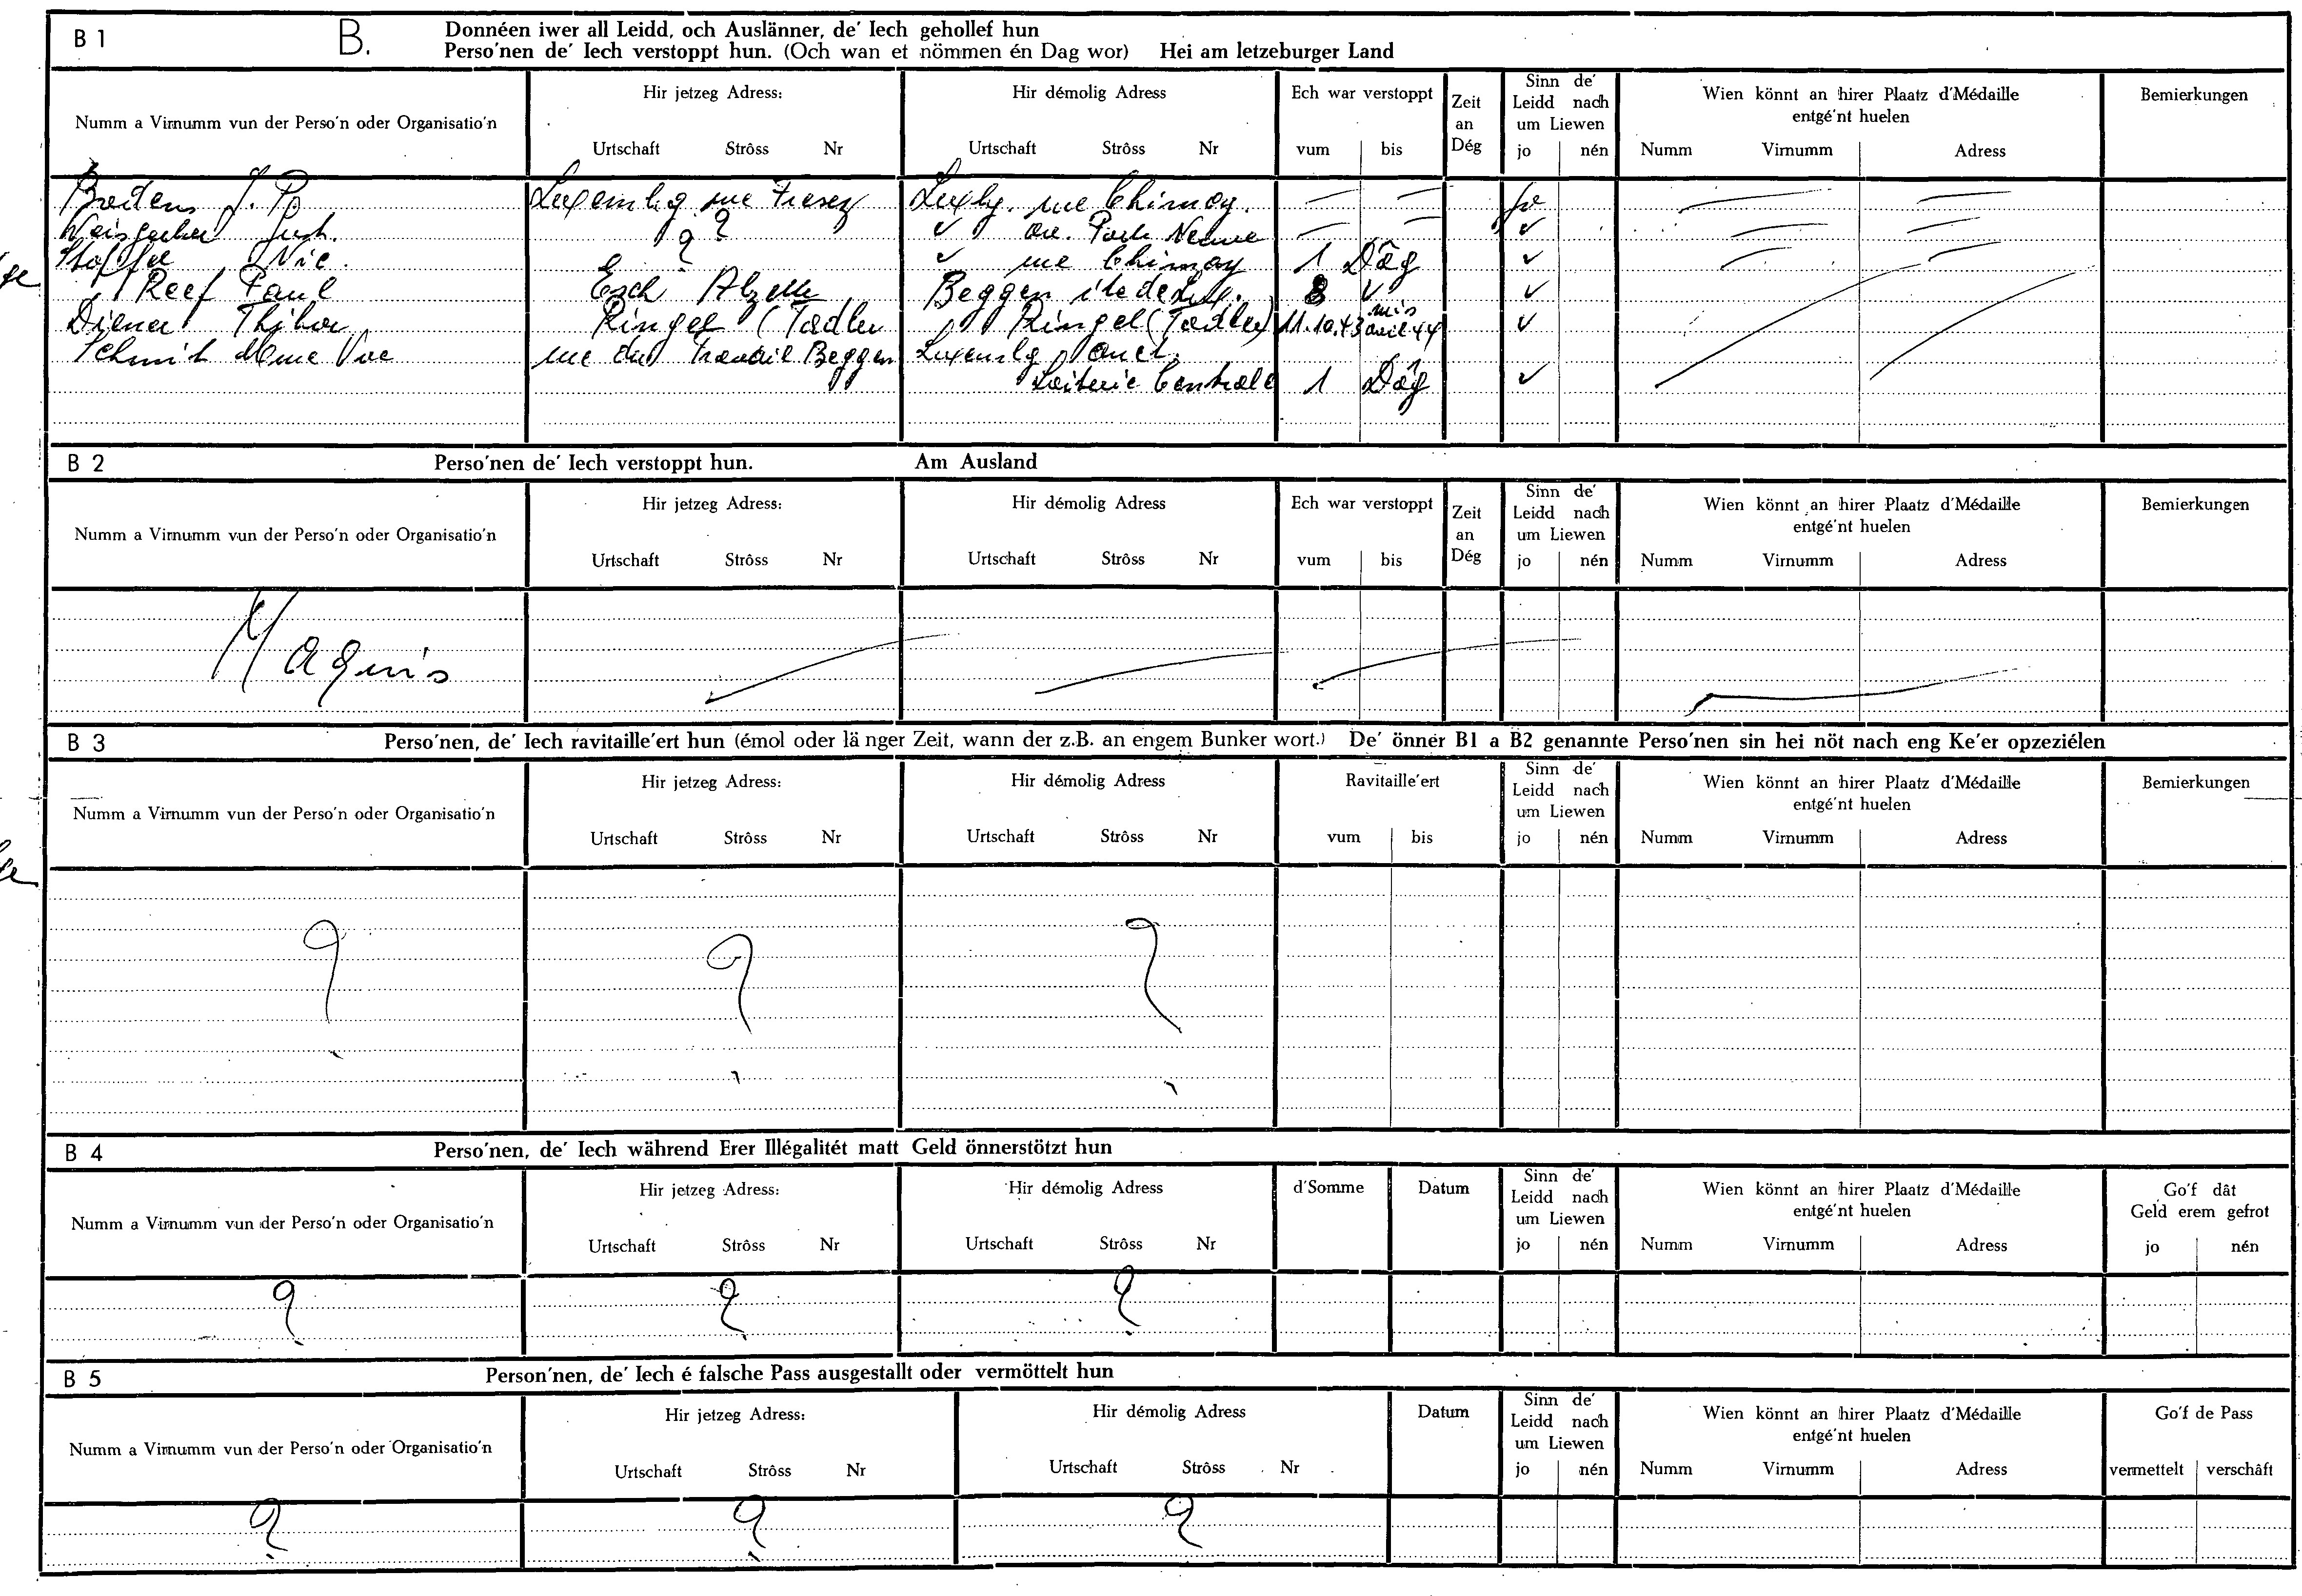 B 1 B. Donnéen iwer all Leidd, och Auslänner, de' Iech gehollef hun
Perso'nen de' Iech verstoppt hun. (Och wan et nömmen én Dag wor) Hei am letzeburger Land
Numm a Virnumm vun der Perso'n oder Organisatio'n
Hir jetzeg Adress:
Urtschaft Strôss Nr
Hir démolig Adress
Urtschaft Strôss Nr
Ech war verstoppt
vum bis
Zeit
an
Dég
Sinn de'
Leidd nach
um Liewen
jo nén
Wien könnt an hirer Plaatz d'Médaille
entgé'nt huelen
Numm Virnumm Adress
Bemierkungen
J. P. rue Luxbg. rue Chimay. — — jo
? ✓ Porte Neuve — — ✓
Stoffel Nic. ? ✓ rue Chimay 1 Dâg ✓
Reef Paul Esch Alzette Beggen 8 ✓ ✓
Diener Ringel (Tadler Ringel (Tadler) 11.10.43 ✓
Schmit Mme Vve rue du Travail Beggen
Laiterie Centrale 1 Dâg ✓
B 2 Perso'nen de' Iech verstoppt hun. Am Ausland
Numm a Virnumm vun der Perso'n oder Organisatio'n
Hir jetzeg Adress:
Urtschaft Strôss Nr
Hir démolig Adress
Urtschaft Strôss Nr
Ech war verstoppt
vum bis
Zeit
an
Dég
Sinn de'
Leidd nach
um Liewen
jo nén
Wien könnt an hirer Plaatz d'Médaille
entgé'nt huelen
Numm Virnumm Adress
Bemierkungen
Maquis
B 3 Perso'nen, de' Iech ravitaille'ert hun (émol oder länger Zeit, wann der z.B. an engem Bunker wort.) De' önner B1 a B2 genannte Perso'nen sin hei nöt nach eng Ke'er opzeziélen
Numm a Virnumm vun der Perso'n oder Organisatio'n
Hir jetzeg Adress:
Urtschaft Strôss Nr
Hir démolig Adress
Urtschaft Strôss Nr
Ravitaille'ert
vum bis
Sinn de'
Leidd nach
um Liewen
jo nén
Wien könnt an hirer Plaatz d'Médaille
entgé'nt huelen
Numm Virnumm Adress
Bemierkungen
? ? ?
B 4 Perso'nen, de' Iech während Erer Illégalitét matt Geld önnerstötzt hun
Numm a Virnumm vun der Perso'n oder Organisatio'n
Hir jetzeg Adress:
Urtschaft Strôss Nr
Hir démolig Adress
Urtschaft Strôss Nr
d'Somme
Datum
Sinn de'
Leidd nach
um Liewen
jo nén
Wien könnt an hirer Plaatz d'Médaille
entgé'nt huelen
Numm Virnumm Adress
Go'f dât
Geld erem gefrot
jo nén
? ? ?
B 5 Person'nen, de' Iech é falsche Pass ausgestallt oder vermöttelt hun
Numm a Virnumm vun der Perso'n oder Organisatio'n
Hir jetzeg Adress:
Urtschaft Strôss Nr
Hir démolig Adress
Urtschaft Strôss Nr
Datum
Sinn de'
Leidd nach
um Liewen
jo nén
Wien könnt an hirer Plaatz d'Médaille
entgé'nt huelen
Numm Virnumm Adress
Go'f de Pass
vermettelt verschâft
? ? ?